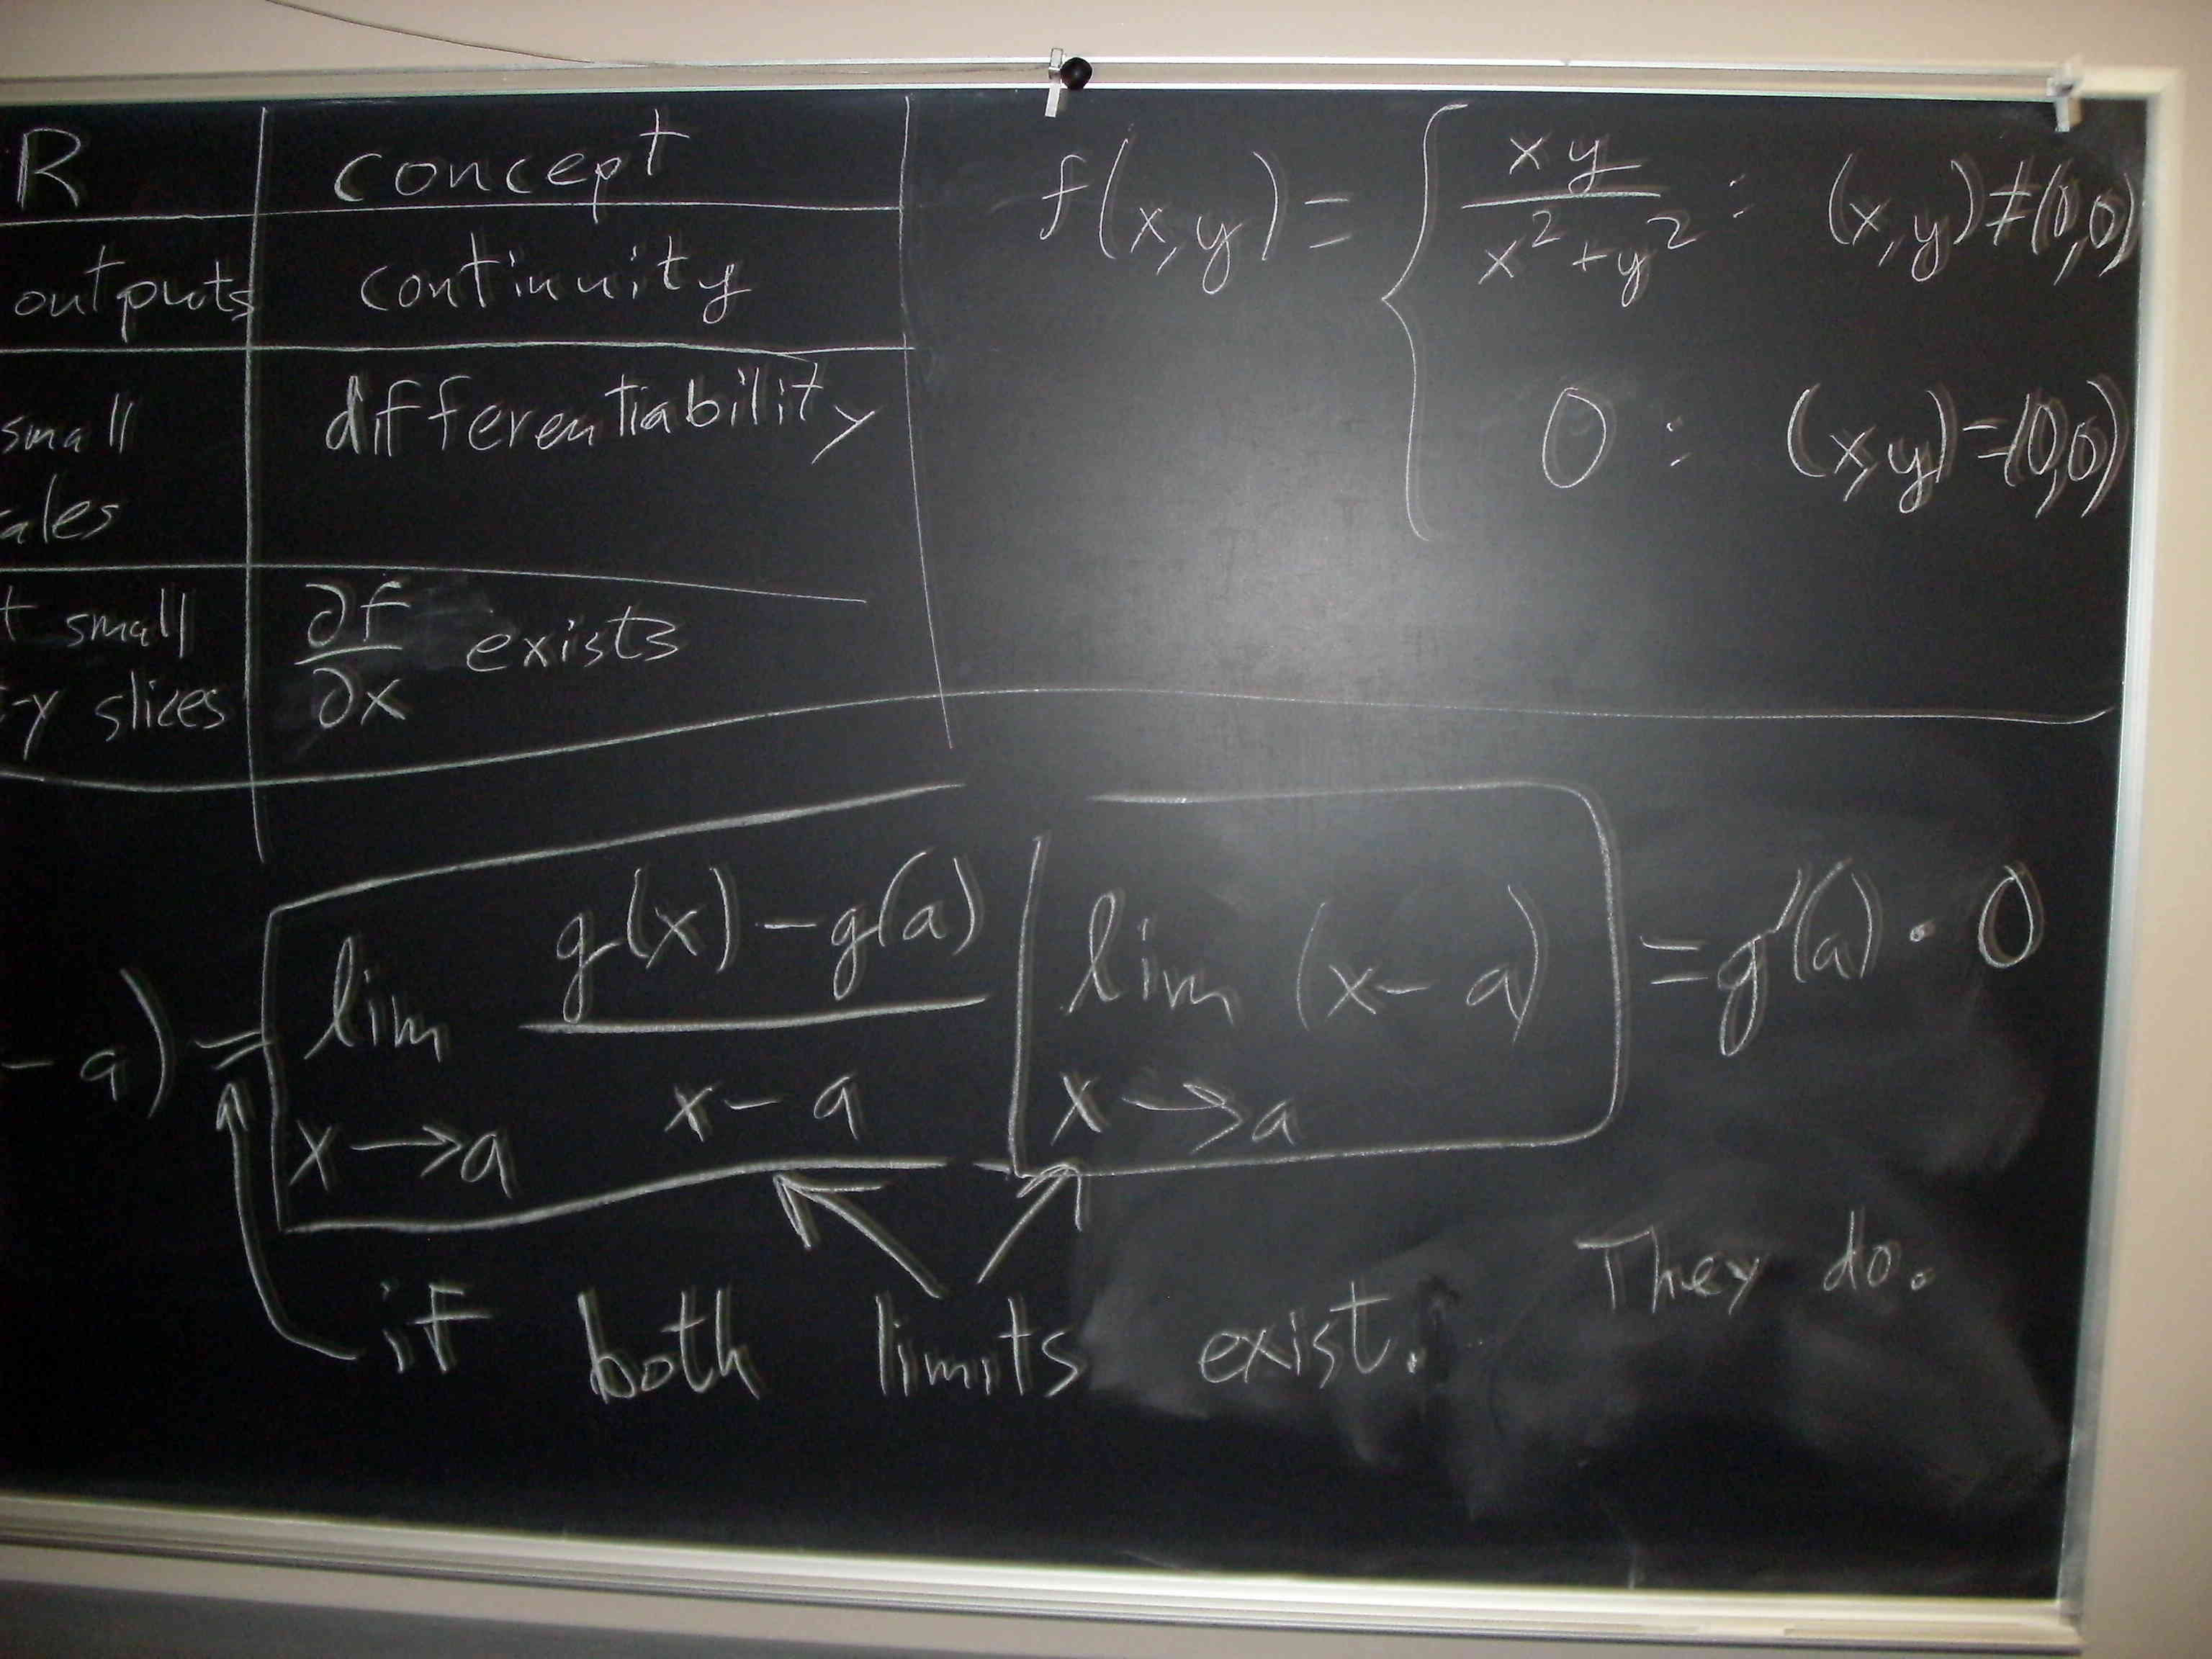 R
concept
outputs
continuity
small
ales
differentiability
t small
-y slices
∂f/∂x exists
f(x,y) = { xy/(x²+y²) : (x,y)≠(0,0)
0 : (x,y)=(0,0)
- a) = lim x→a (g(x) - g(a))/(x - a) lim x→a (x - a) = g'(a) · 0
if both limits exist. They do.